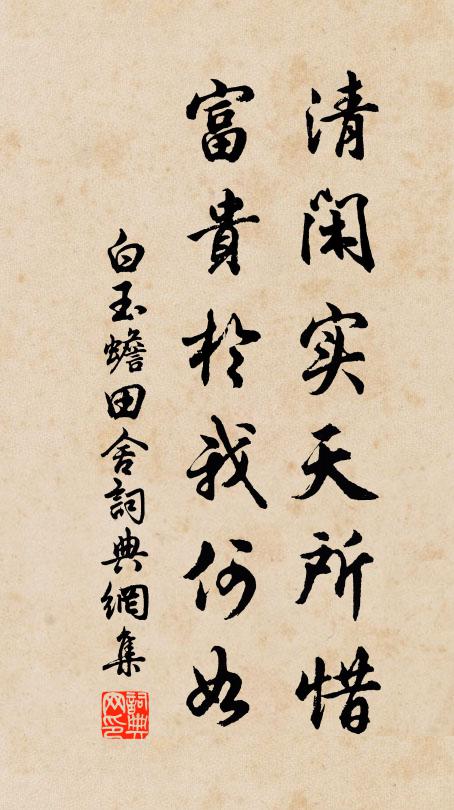 清閑实天所惜
富貴於我何如
白玉蟾田舍詞典網集
詞典
网印